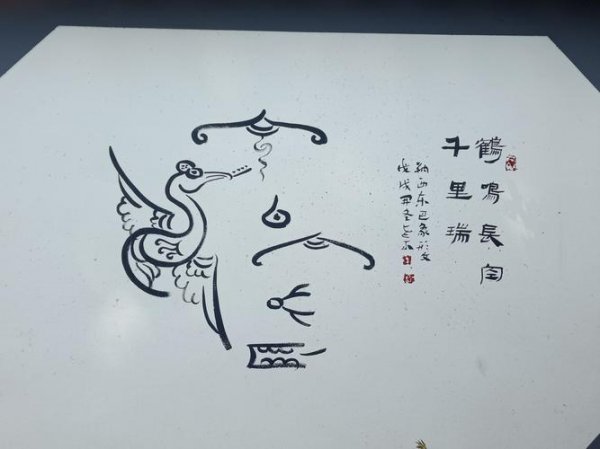 鶴鳴長空
千里瑞
納西东巴象形文
戊戌冬